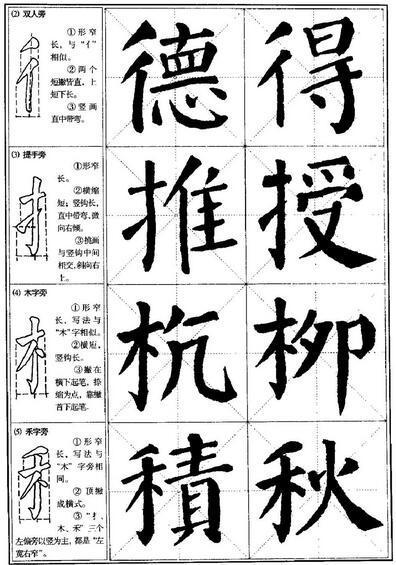 (2) 双人旁
①形窄
长,与“亻”
相似。
②两个
短撇皆直,上
短下长。
③竖画
直中带弯。
德得
(3) 提手旁
①形窄
长。
②横缩
短;竖钩长,
直中带弯,微
向右倾。
③挑画
与竖钩中间
相交,斜向右
上。
推授
(4) 木字旁
①形窄
长,写法与
“木”字相似。
②横短,
竖钩长。
③撇在
横下起笔,捺
缩为点,靠撇
首下起笔.
杭柳
(5) 禾字旁
①形窄
长,写法与
“木”字旁相
同。
②顶撇
成横式。
③“扌、
木、禾”三个
左偏旁以竖为主,都是“左
宽右窄”。
積秋